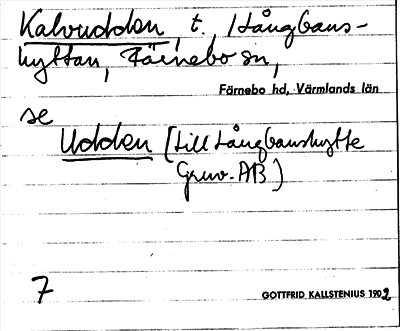 Kalvudden, t. Långbans-
hyttan, Färnebo sn,
Färnebo hd, Värmlands län
se
Udden (till Långbanshytte
Gruv-AB)
7
GOTTFRID KALLSTENIUS 1902